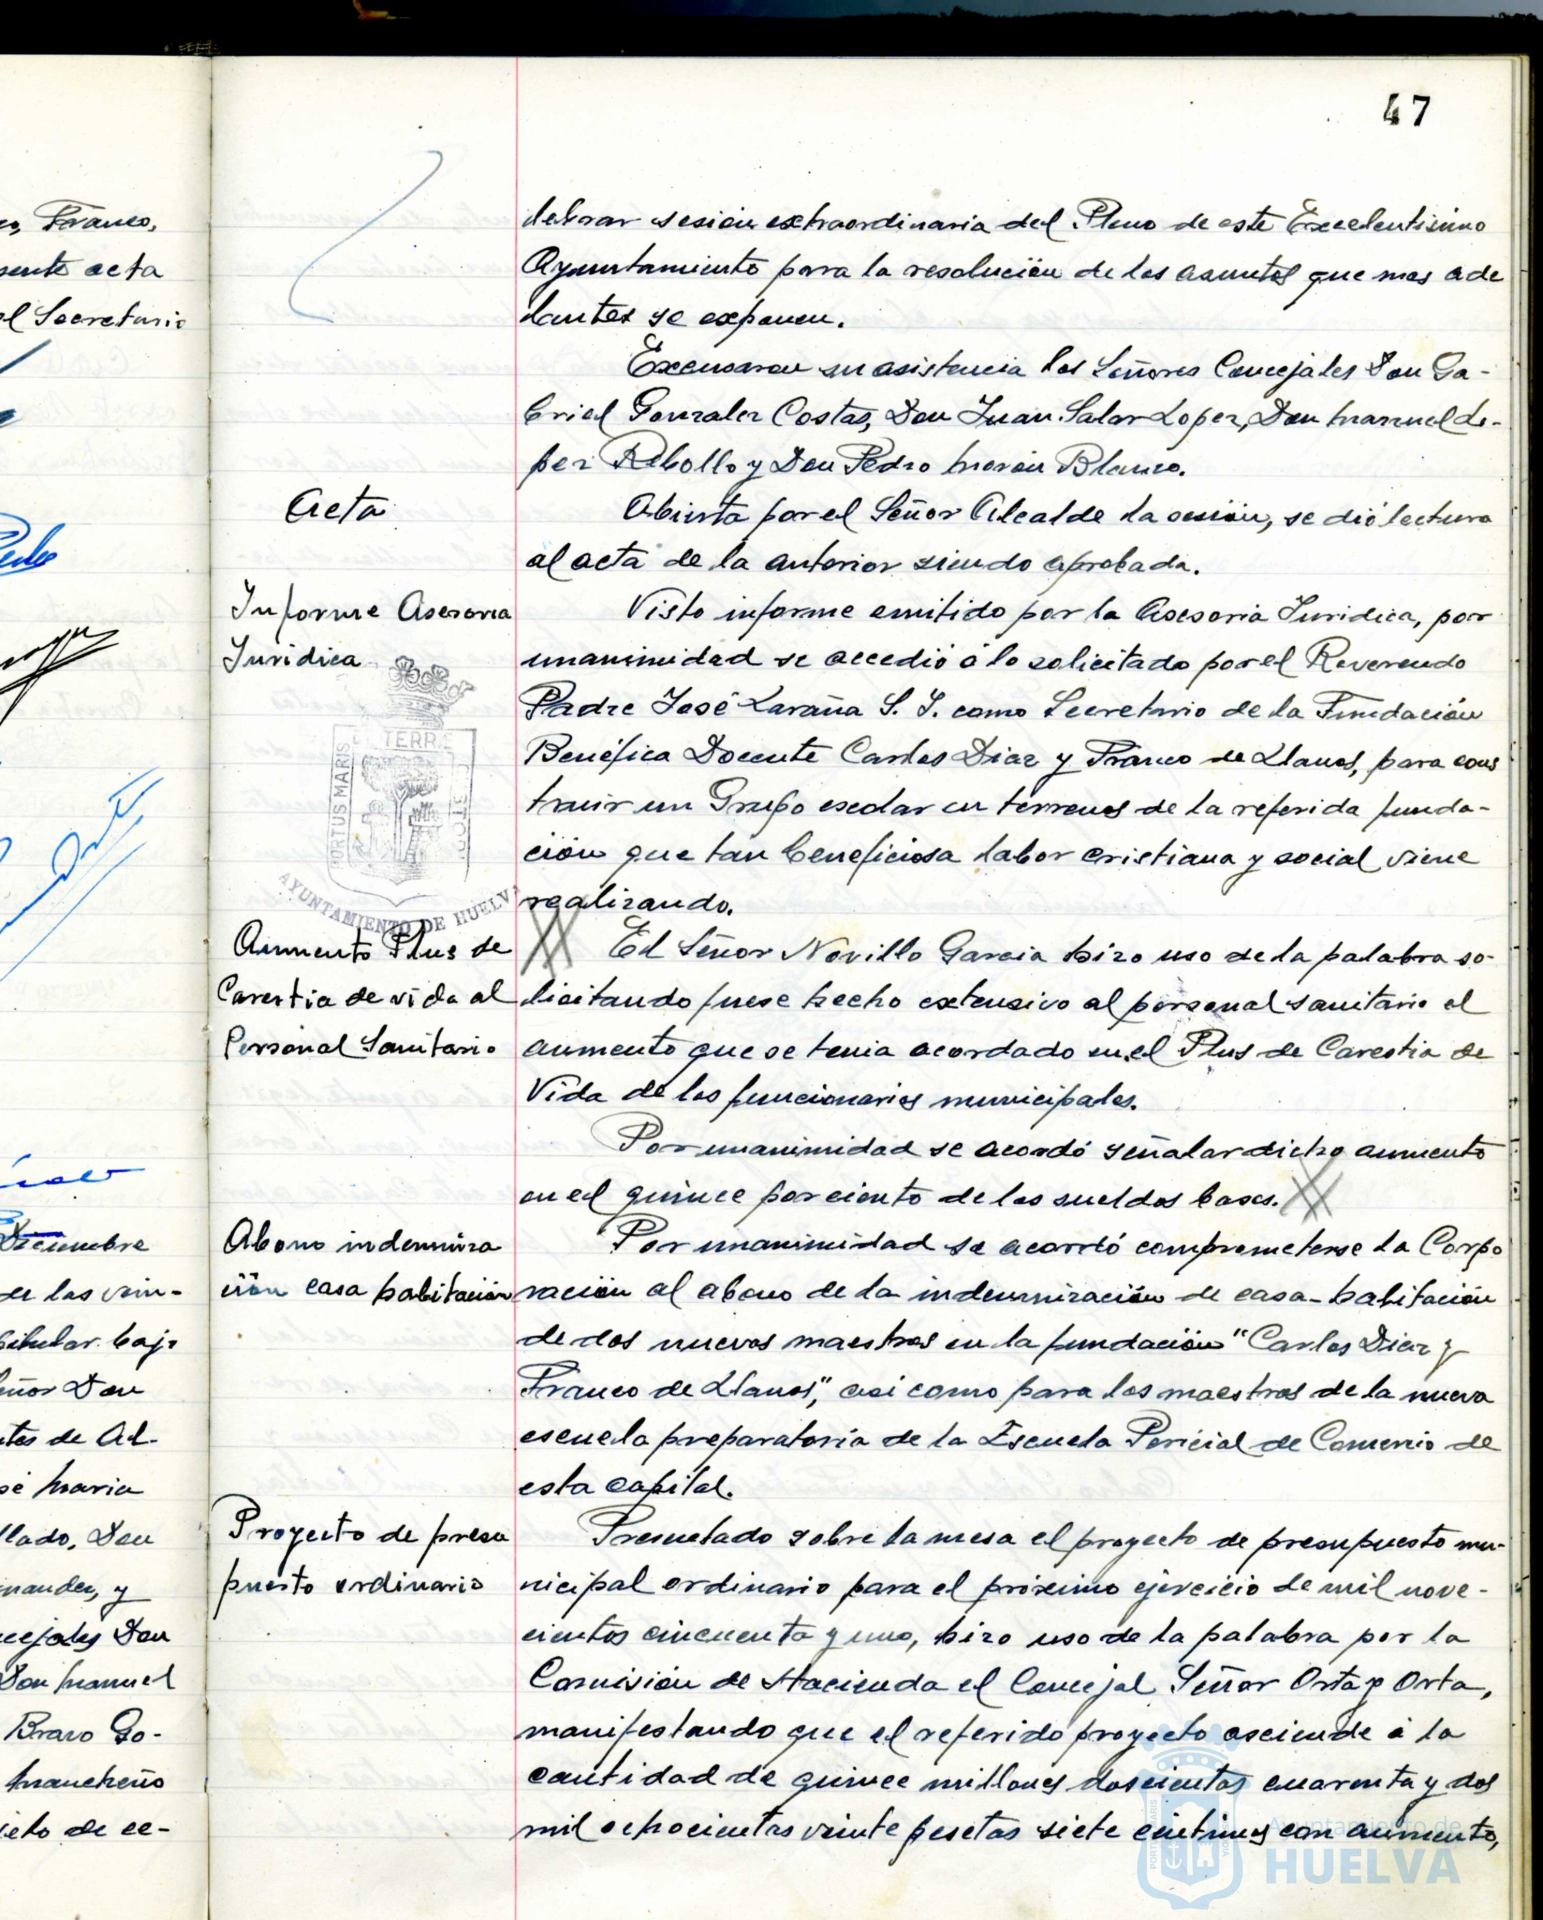 47
lebrar sesión extraordinaria del Pleno de este Excelentisimo
Ayuntamiento para la resolución de los asuntos que mas ade
lantes se exponen.
Excusaron su asistencia los Señores Concejales Don Ga-
briel Gonzalez Costas, Don Juan Salar Lopez, Don Manuel Lo-
pez Rebollo y Don Pedro Morón Blanco.
Acta
Abierta por el Señor Alcalde la sesión, se dió lectura
al acta de la anterior siendo aprobada.
Informe Asesoria
Juridica
Visto informe emitido por la Asesoria Juridica, por
unanimidad se accedió á lo solicitado por el Reverendo
Padre José Laraña S. J. como Secretario de la Fundación
Benéfica Docente Carlos Diaz y Franco de Llanos, para cons
truir un Grupo escolar en terrenos de la referida funda-
ción que tan beneficiosa labor cristiana y social viene
realizando.
PORTUS MARIS
TERRE
AYUNTAMIENTO DE HUELVA
Aumento Plus de
Carestia de vida al
Personal Sanitario
El Señor Novillo Garcia hizo uso de la palabra so-
licitando fuese hecho extensivo al personal sanitario el
aumento que se tenia acordado en el Plus de Carestia de
Vida de los funcionarios municipales.
Por unanimidad se acordó señalar dicho aumento
en el quince por ciento de los sueldos bases.
Abono indemniza
ción casa habitación
Por unanimidad se acordó comprometerse la Corpo
ración al abono de la indemnización de casa-habitación
de dos nuevos maestros en la fundación "Carlos Diaz y
Franco de Llanos", asi como para los maestros de la nueva
escuela preparatoria de la Escuela Pericial de Comercio de
esta capital.
Proyecto de presu
puesto ordinario
Presentado sobre la mesa el proyecto de presupuesto mu-
nicipal ordinario para el próximo ejercicio de mil nove-
cientos cincuenta y uno, hizo uso de la palabra por la
Comisión de Hacienda el Concejal Señor Orta y Orta,
manifestando que el referido proyecto asciende á la
cantidad de quince millones doscientos cuarenta y dos
mil ochocientas veinte pesetas siete centimos con aumento,
Ayuntamiento de
HUELVA
Franco,
sente acta
el Secretario
Diciembre
de las vein-
pitular bajo
eñor Don
tes de Al-
sé Maria
llado, Don
nandez, y
cejales Don
Don Manuel
Bravo Go-
Mancheño
jeto de ce-